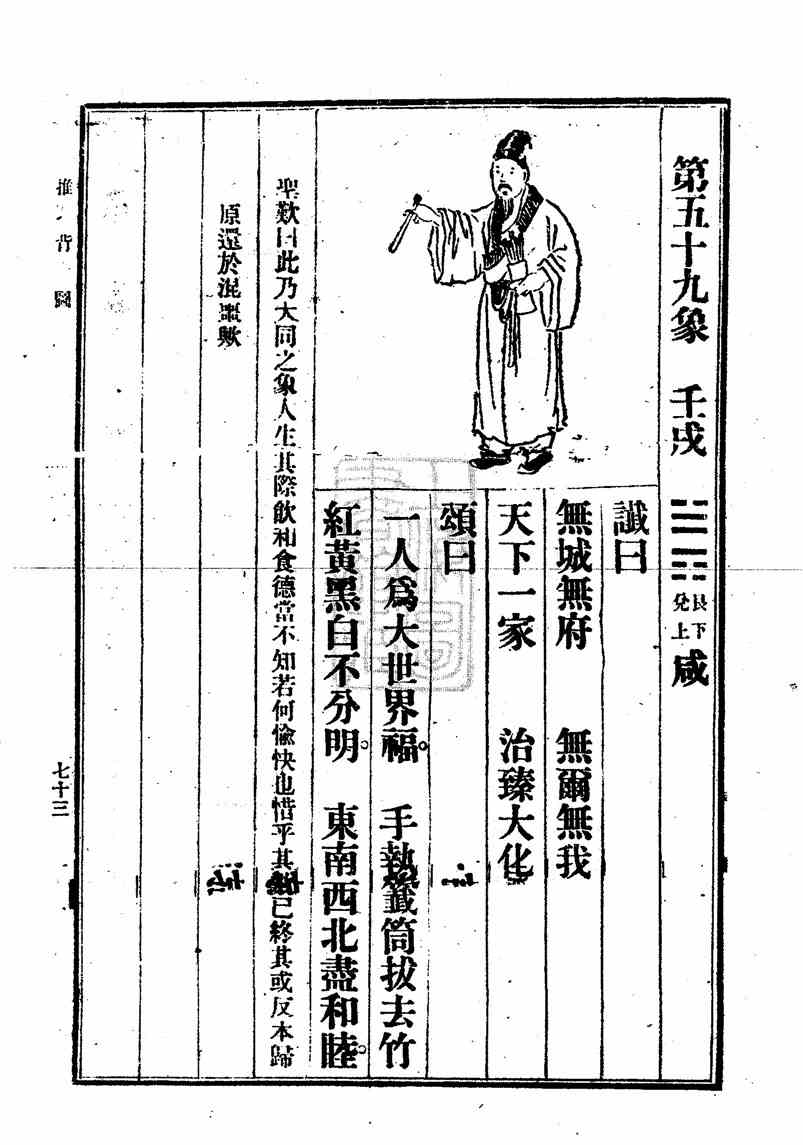 第五十九象 壬戌 艮下兌上 咸
讖曰
無城無府 無爾無我
天下一家 治臻大化
頌曰
一人爲大世界福。 手執籤筒拔去竹
紅黃黑白不分明。 東南西北盡和睦。
聖歎曰此乃大同之象人生其際飲和食德當不知若何愉快也惜乎其已終其或反本歸
原還於混噩歟
推背圖
七十三